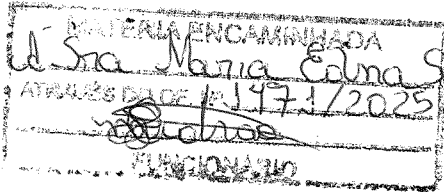 MATÉRIA ENCAMINHADA
à Sra Maria Edna S
ATRAVÉS DO OF. Nº 1471/2025
FUNCIONÁRIO